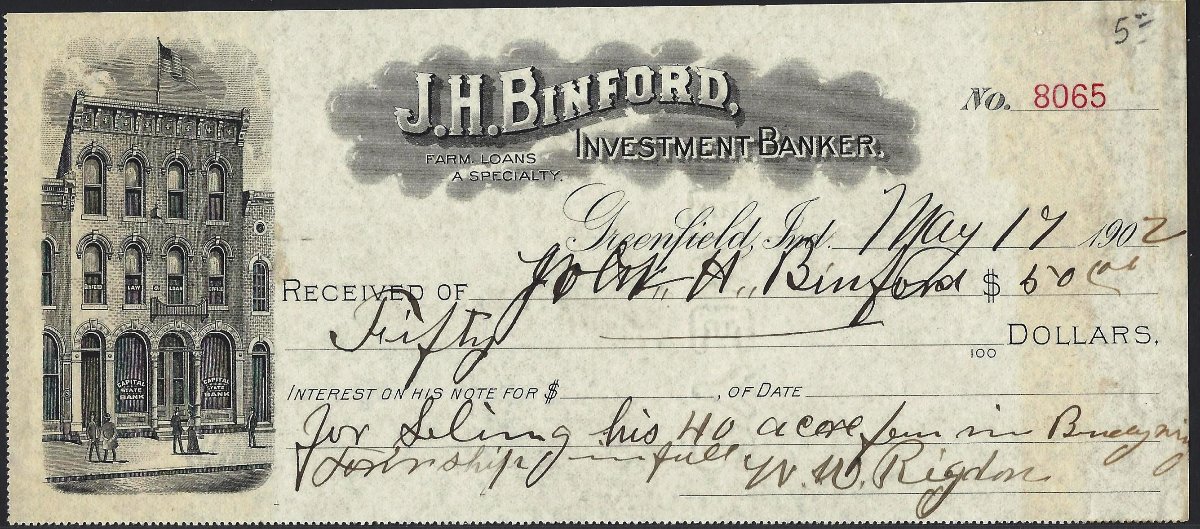 5=
J.H. BINFORD,
INVESTMENT BANKER.
FARM LOANS
A SPECIALTY.
No. 8065
Greenfield, Ind. May 17 1902
RECEIVED OF John H. Binford $ 50 00
Fifty 100 DOLLARS,
INTEREST ON HIS NOTE FOR $ , OF DATE
for Seling his 40 acore in
Township in full W. W. Rigdon
LAW LOAN
CAPITAL STATE BANK
CAPITAL STATE BANK